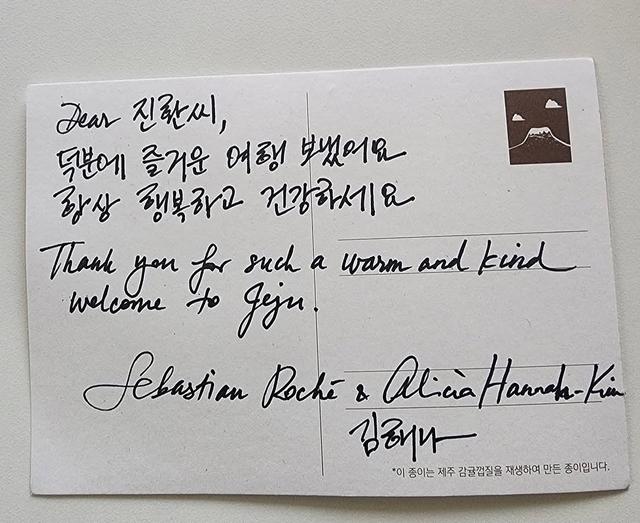 Dear 진환씨,
덕분에 즐거운 여행 보냈어요
항상 행복하고 건강하세요.
Thank you for such a warm and kind
welcome to Jeju.
Sebastian Roché & Alicia Hannah-Kim
김해나
*이 종이는 제주 감귤껍질을 재생하여 만든 종이입니다.